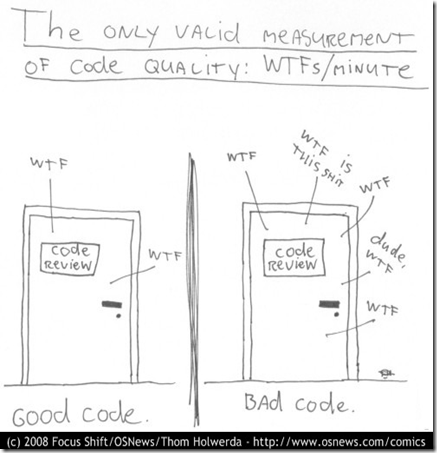 The ONLY VALID MEASUREMENT
OF Code QUALITY: WTFs/MINUTE
WTF
Code
REVIEW
WTF
GOOD Code.
WTF
WTF IS
THIS SHIT
WTF
Code
REVIEW
dude,
WTF
WTF
BAD Code.
(c) 2008 Focus Shift/OSNews/Thom Holwerda - http://www.osnews.com/comics